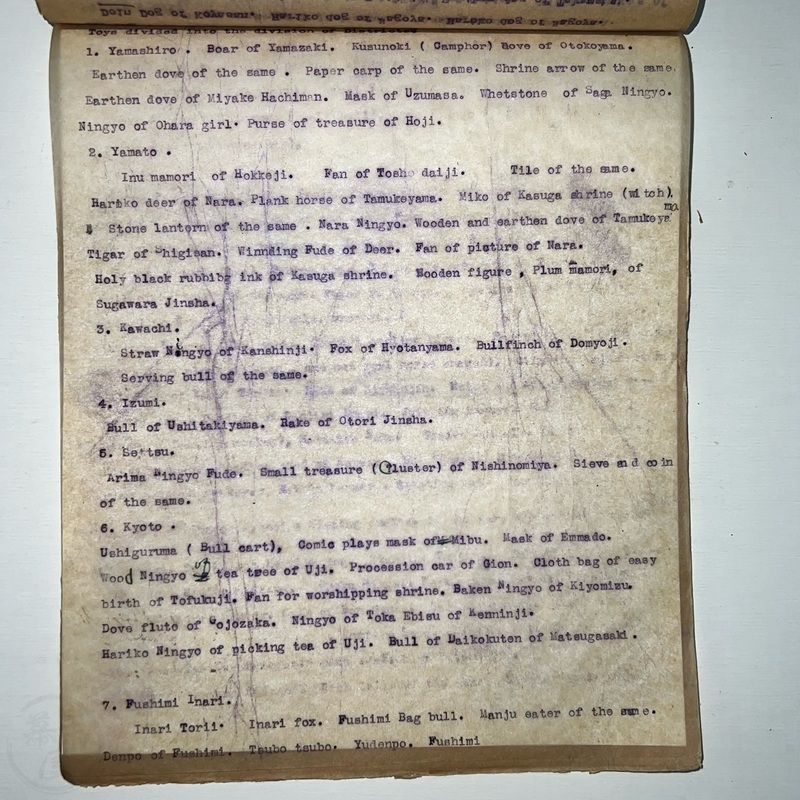 Toys divided into the division of Districts
1. Yamashiro. Boar of Yamazaki. Kusunoki ( Camphor) dove of Otokoyama.
Earthen dove of the same . Paper carp of the same. Shrine arrow of the same.
Earthen dove of Miyake Hachiman. Mask of Uzumasa. Whetstone of Saga Ningyo.
Ningyo of Ohara girl. Purse of treasure of Hoji.
2. Yamato .
Inu mamori of Hokkeji. Fan of Tosho daiji. Tile of the same.
Hariko deer of Nara. Plank horse of Tamukeyama. Miko of Kasuga shrine (witch).
Stone lantern of the same . Nara Ningyo. Wooden and earthen dove of Tamukeya
ma.
Tigar of Shigisan. Winnding Fude of Deer. Fan of picture of Nara.
Holy black rubbibg ink of Kasuga shrine. Wooden figure , Plum mamori, of
Sugawara Jinsha.
3. Kawachi.
Straw Ningyo of Kanshinji. Fox of Hyotanyama. Bullfinch of Domyoji.
Serving bull of the same.
4. Izumi.
Bull of Ushitakiyama. Rake of Otori Jinsha.
5. Settsu.
Arima Ningyo Fude. Small treasure (Cluster) of Nishinomiya. Sieve and coin
of the same.
6. Kyoto .
Ushiguruma ( Bull cart), Comic plays mask of Mibu. Mask of Emmado.
Wood Ningyo of tea tree of Uji. Procession car of Gion. Cloth bag of easy
birth of Tofukuji. Fan for worshipping shrine. Baken Ningyo of Kiyomizu.
Dove flute of Gojozaka. Ningyo of Toka Ebisu of Kenninji.
Hariko Ningyo of picking tea of Uji. Bull of Daikokuten of Matsugasaki.
7. Fushimi Inari.
Inari Torii. Inari fox. Fushimi Bag bull. Manju eater of the same.
Denpo of Fushimi. Tsubo tsubo. Yudenpo. Fushimi